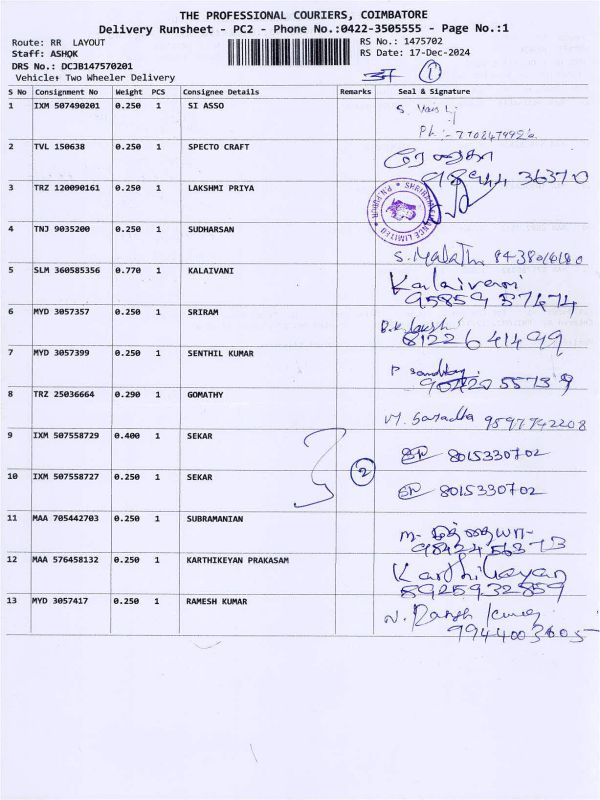 THE PROFESSIONAL COURIERS, COIMBATORE
Delivery Runsheet - PC2 - Phone No.:0422-3505555 - Page No.:1
Route: RR LAYOUT
RS No.: 1475702
Staff: ASHOK
RS Date: 17-Dec-2024
DRS No.: DCJB147570201
Vehicle: Two Wheeler Delivery
1
S No Consignment No Weight PCS Consignee Details Remarks Seal & Signature
1 IXM 507490201 0.250 1 SI ASSO
Ph :-
2 TVL 150638 0.250 1 SPECTO CRAFT
3 TRZ 120090161 0.250 1 LAKSHMI PRIYA
4 TNJ 9035200 0.250 1 SUDHARSAN S. Malathi
5 SLM 360585356 0.770 1 KALAIVANI Kalaivani
95859 57474
6 MYD 3057357 0.250 1 SRIRAM
81226 41499
7 MYD 3057399 0.250 1 SENTHIL KUMAR
8 TRZ 25036664 0.290 1 GOMATHY M. Saradha 9597742208
9 IXM 507558729 0.400 1 SEKAR 8015330702
2
10 IXM 507558727 0.250 1 SEKAR 8015330702
11 MAA 705442703 0.250 1 SUBRAMANIAN
98424 56373
12 MAA 576458132 0.250 1 KARTHIKEYAN PRAKASAM Karthikeyan
8925932859
13 MYD 3057417 0.250 1 RAMESH KUMAR N. Ramesh Kumar
9944003605